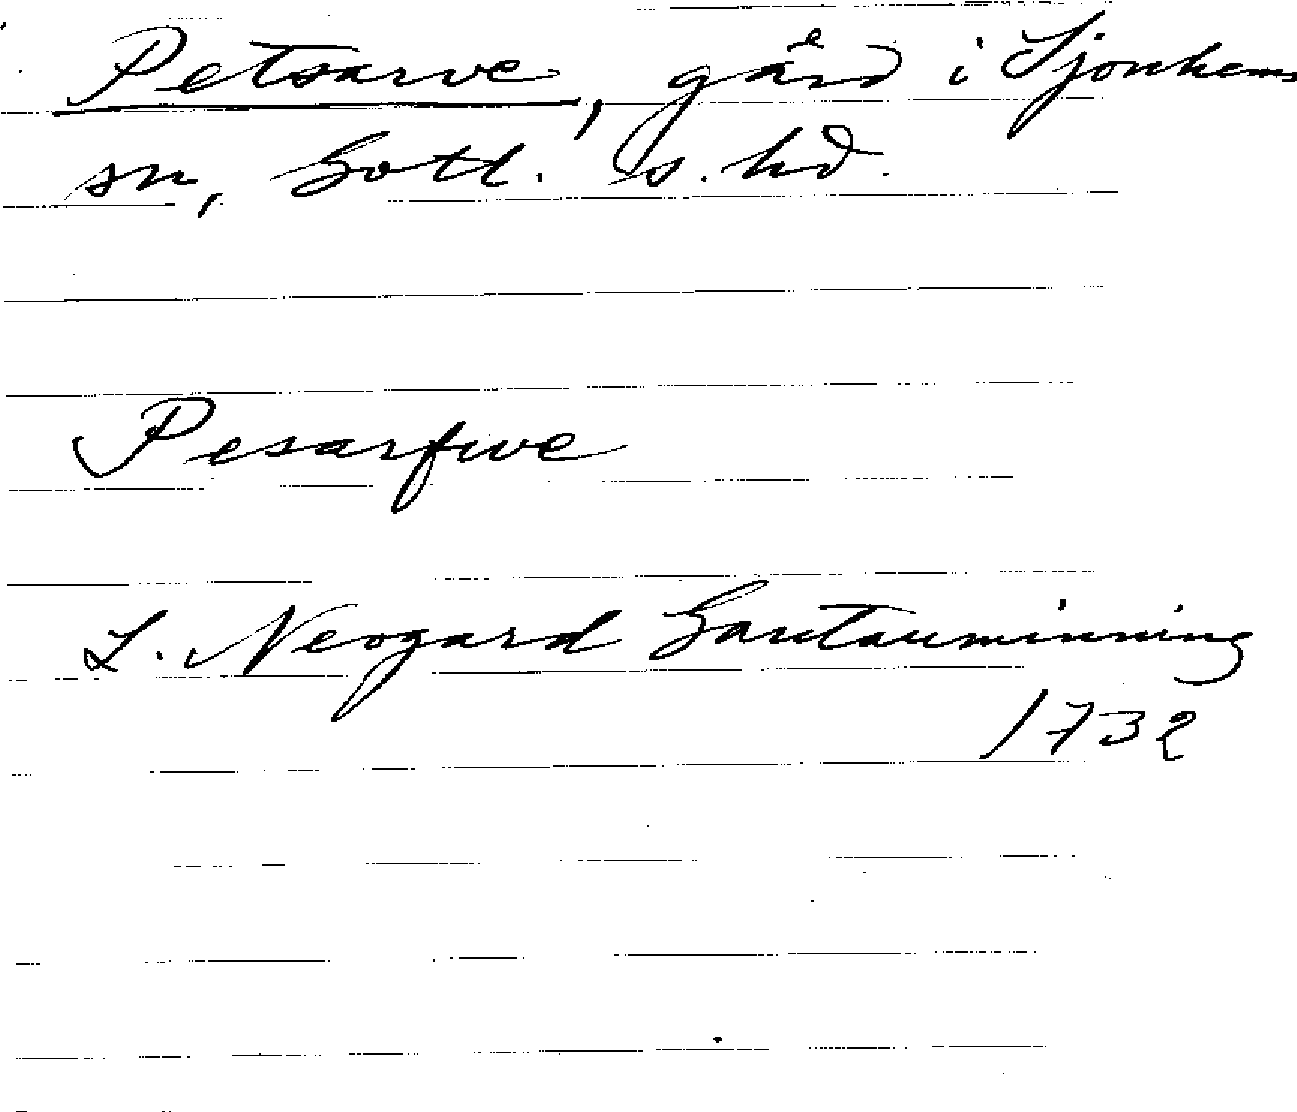 Petsarve, gård i Sjonhems
sn, Gotl. s. hd.
Pesarfwe
L. Neogard Gautauminning
1732